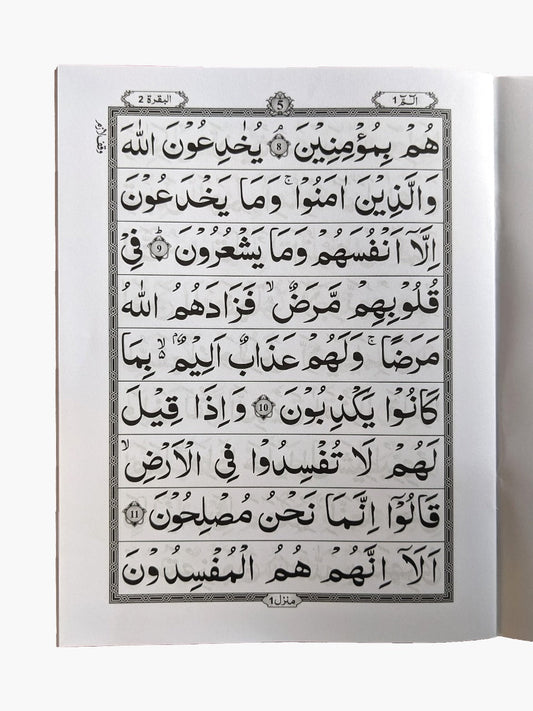 الٓمّٓ 1
5
البقرة 2
هُمْ بِمُؤْمِنِيْنَ ۘ 8 يُخٰدِعُوْنَ اللّٰهَ
وَالَّذِيْنَ اٰمَنُوْا ۚ وَمَا يَخْدَعُوْنَ
اِلَّاۤ اَنْفُسَهُمْ وَمَا يَشْعُرُوْنَ ؕ 9 فِيْ
قُلُوْبِهِمْ مَّرَضٌ ۙ فَزَادَهُمُ اللّٰهُ
مَرَضًا ۚ وَلَهُمْ عَذَابٌ اَلِيْمٌۢ ۙ بِمَا
كَانُوْا يَكْذِبُوْنَ 10 وَاِذَا قِيْلَ
لَهُمْ لَا تُفْسِدُوْا فِي الْاَرْضِ ۙ
قَالُوْۤا اِنَّمَا نَحْنُ مُصْلِحُوْنَ 11
اَلَاۤ اِنَّهُمْ هُمُ الْمُفْسِدُوْنَ
منزل 1
وقف لازم